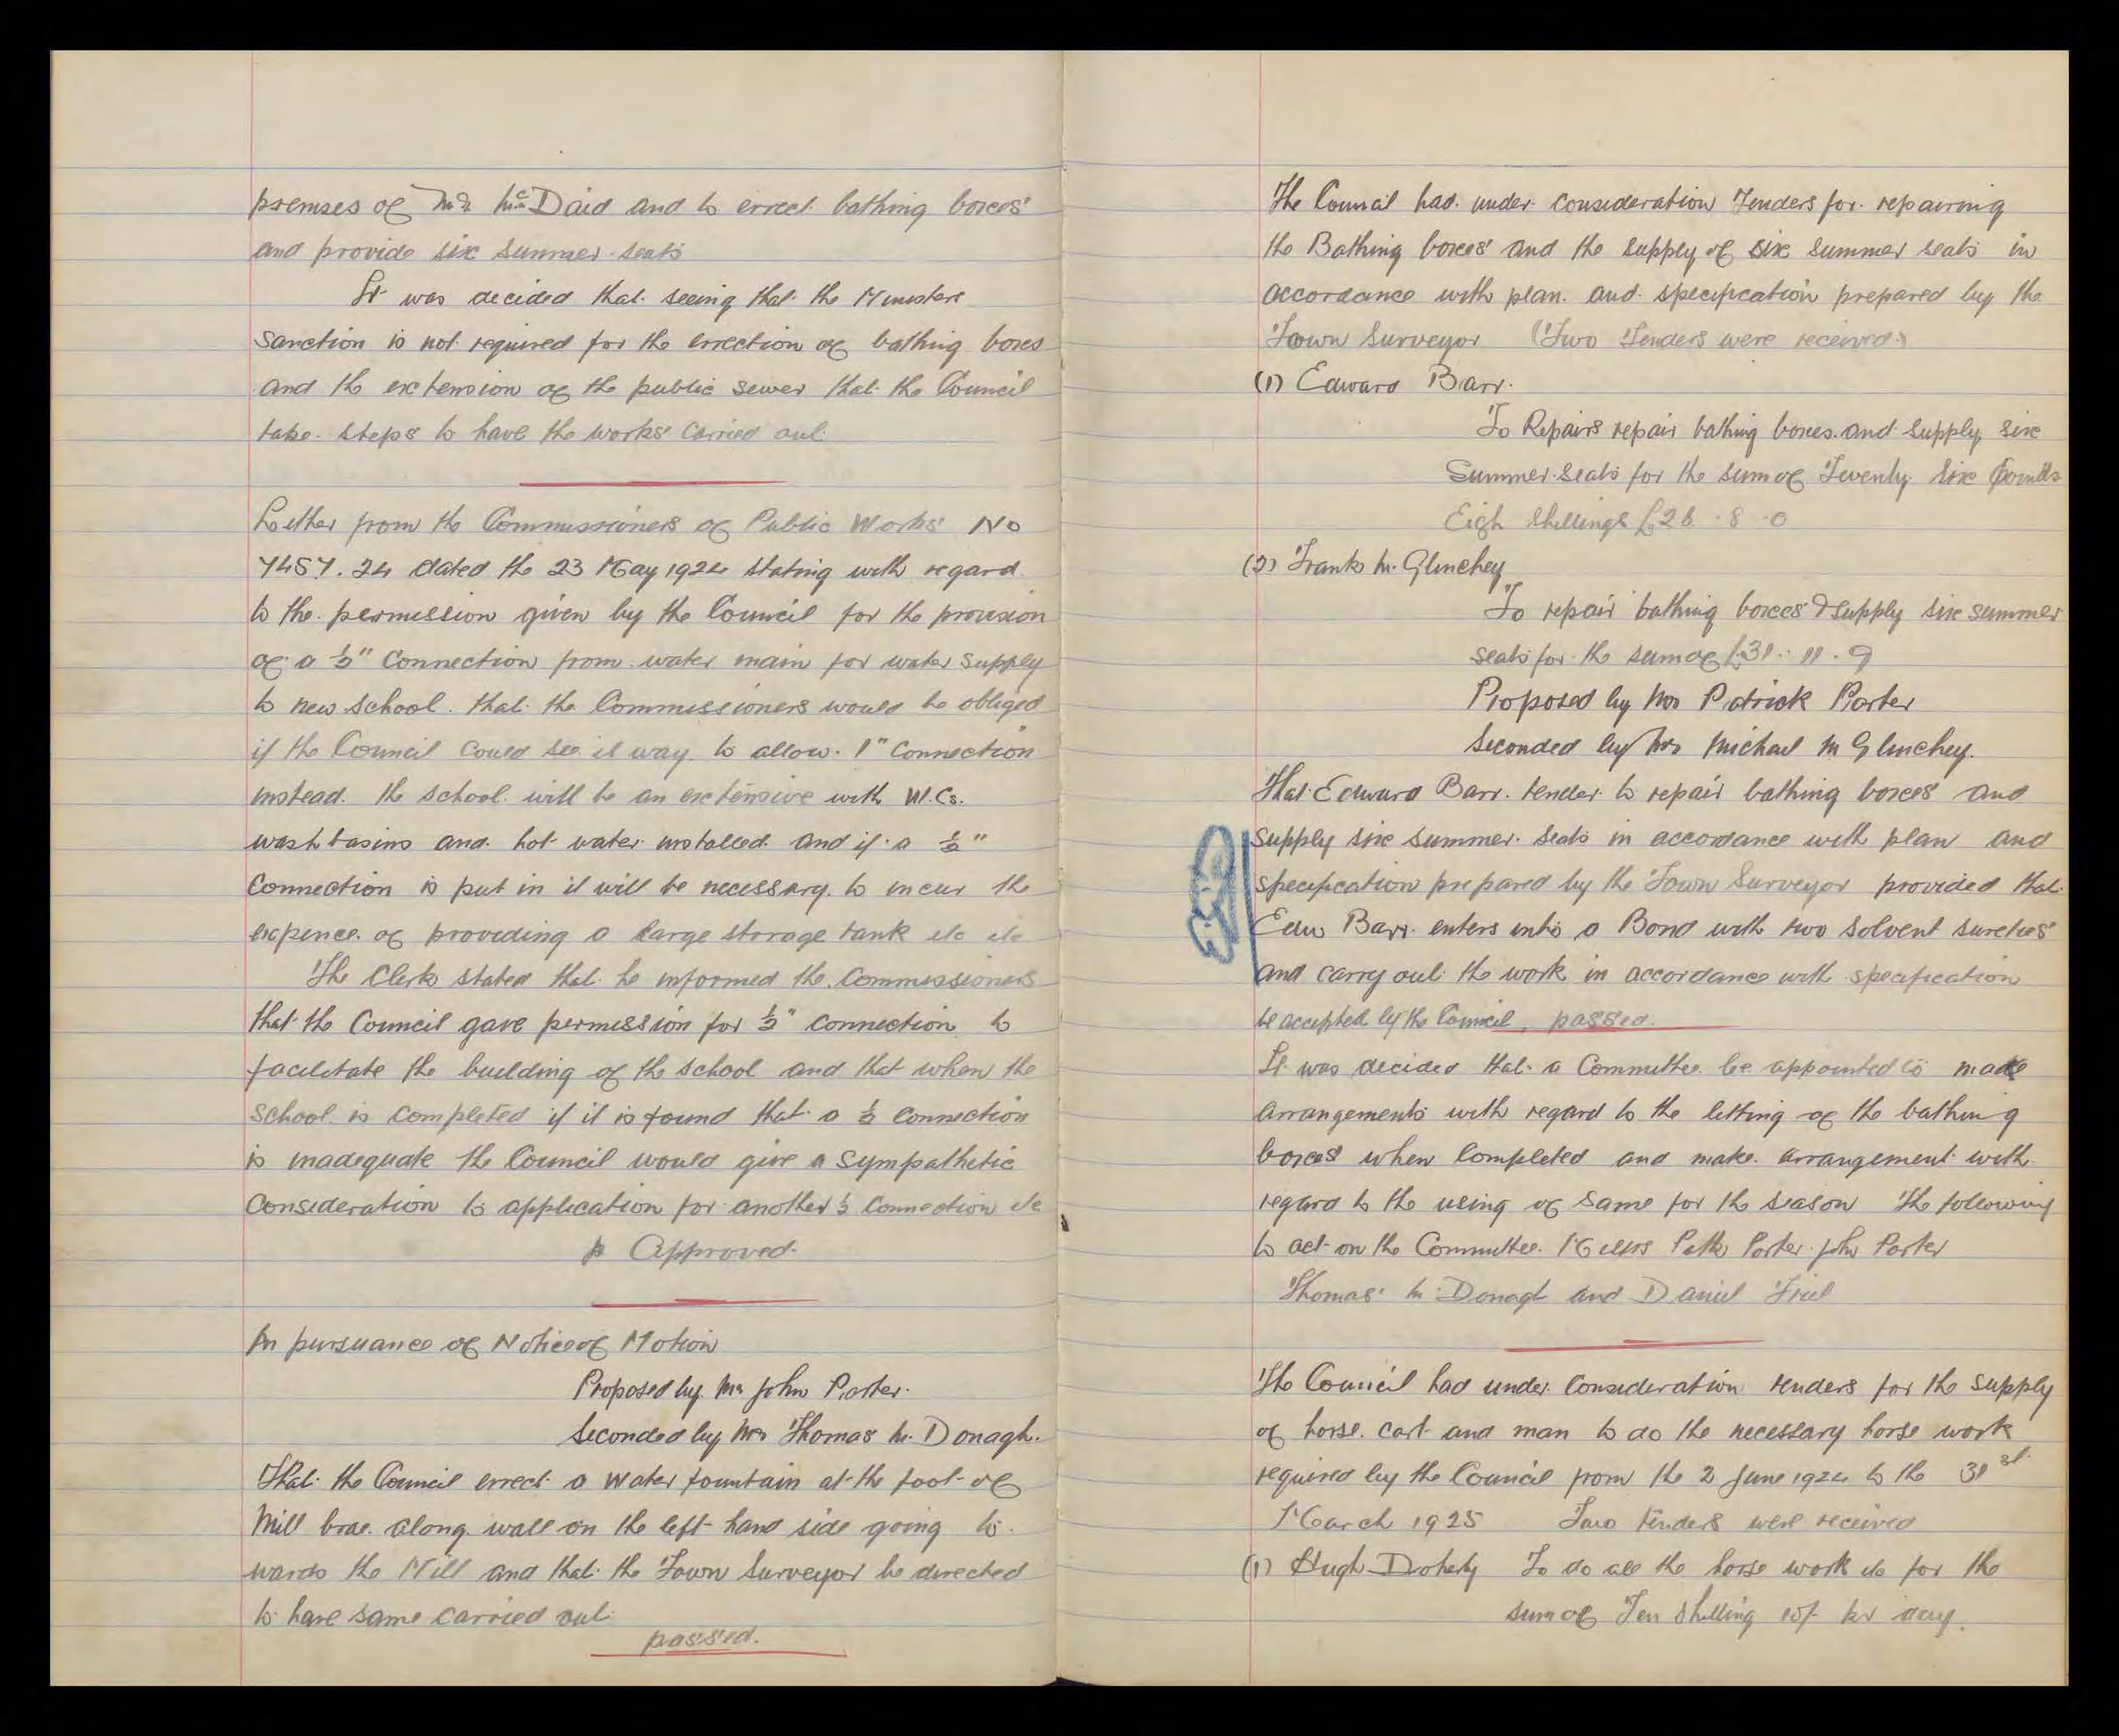 premses of Mr McDaid and to errect bathing boxes
and provide six summer seats
It was decided that seeing that the Ministers
sanction is not required for the errection of bathing boxes
and the extension of the public sewer that the Council
take steps to have the works carried out.
Letter from the Commissioners of Public Works No
7457.24 dated the 23 May 1924 stating with regard
to the permission given by the Council for the provision
of a ½" connection from water main for water supply
to new school. that the Commissioners would be obliged
if the Council could see it way to allow 1" Connection
instead. the school will be an extensive with W.Cs.
wash basins and hot water installed and if a ½"
Connection is put in it will be necessary to incur the
expence of providing a large storage tank etc etc
The Clerk stated that he informed the Commissioners
that the Council gave permission for ½" connection to
facilitate the building of the school and that when the
school is completed if it is found that a ½ connection
is inadequate the Council would give a sympathetic
Consideration to application for another ½ Connection etc
Approved.
In pursuance of Notice of Motion
Proposed by Mr John Porter.
Seconded by Mr Thomas Mc Donagh.
That the Council errect a water fountain at the foot of
Mill brae along wall on the left hand side going to
wards the Mill and that the Town Surveyor be directed
to have same carried out
passed.
The Council had under consideration Tenders for repairing
the Bathing boxes and the supply of six summer seats in
accordance with plan and specification prepared by the
Town Surveyor (Two Tenders were received.)
(1) Edward Barr.
To Repairs repair bathing boxes and supply six
Summer Seats for the sum of Twenty six pounds
Eigh shillings £26 . 8 . 0
(2) Frank Mc Glinchey
To repair bathing boxes & supply six summer
seats for the sum of £31 . 11 . 9
Proposed by Mr Patrick Porter
Seconded by Mr Michael Mc Glinchey.
That Edward Barr. tender to repair bathing boxes and
supply six summer seats in accordance with plan and
specification prepared by the Town Surveyor provided that
Edw Barr enters into a Bond with two solvent sureties
and carry out the work in accordance with specification
be accepted by the Council, passed.
It was decided that a Committee be appointed to make
arrangements with regard to the letting of the bathing
boxes when Completed and make arrangement with
regard to the using of same for the season The following
to act on the Committee. Messrs Patk Porter John Porter
Thomas Mc Donagh and Daniel Friel
The Council had under Consideration tenders for the supply
of horse cart and man to do the necessary horse work
required by the Council from the 2 June 1924 to the 31st
March 1925 Two tenders were received
(1) Hugh Doherty To do all the horse work etc for the
sum of Ten Shilling 10/- per day.